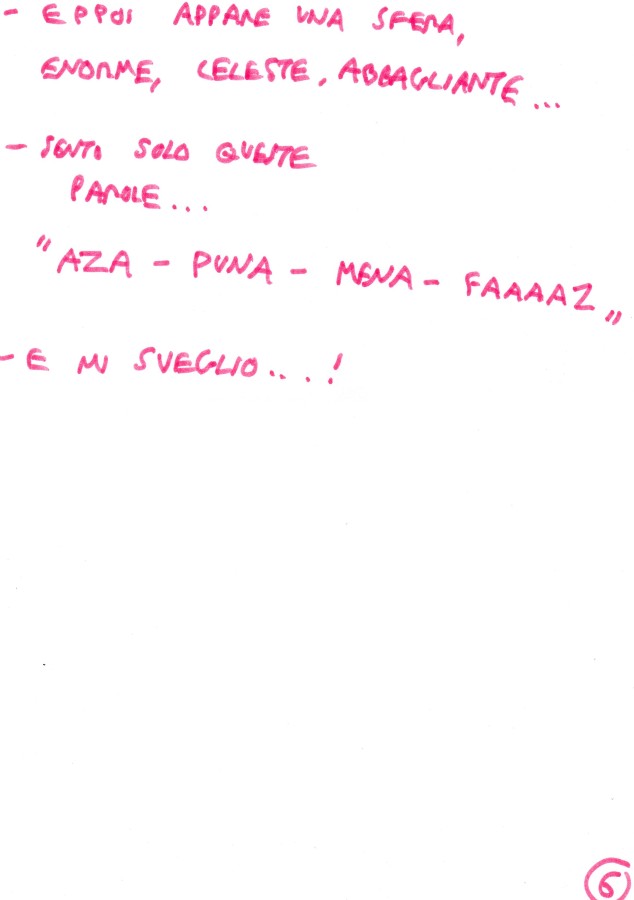 - EPPOI APPARE UNA SFERA,
ENORME, CELESTE, ABBAGLIANTE...
- SENTO SOLO QUESTE
PAROLE...
"AZA - PUNA - MENA - FAAAAZ„
- E MI SVEGLIO....!
6